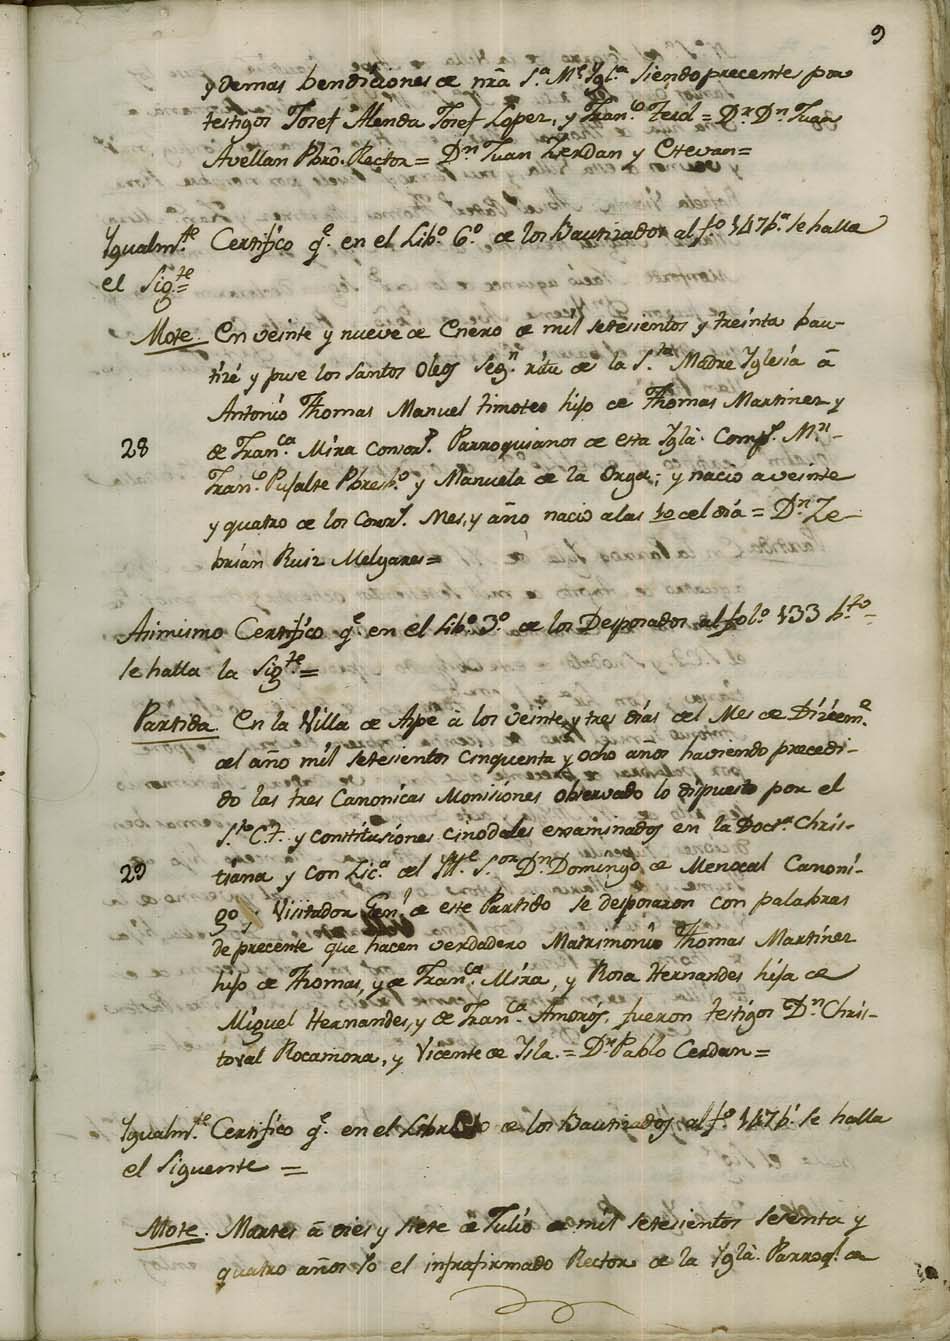 9
y demas bendiciones de nrã Sª Mᵉ Yglª siendo precente por
testigos Josef Alenda Josef Lopez, y Franᶜᵒ Zerd = Dʳ Dⁿ Juan
Avellan Pbrô. Rector = Dⁿ Juan Zerdan y Estevan =
Ygualmᵗᵉ Certifico qᵉ en el Libº 6º de los Bautizados al fº 147 bª se halla
el Sigᵗᵉ =
Mote. En veinte y nueve de Enero de mil setesientos y treinta bau-
tizé y puse los santos oleos segⁿ ritu de la Sᵗᵃ Madre Yglesia â
Antonio Thomas Manuel timoteo hijo de Thomas Martinez y
28 de Franᶜᵃ Mira Consorᵗ. Parroquianos de esta Yglâ. Compˢ. Mⁿ
Franᶜᵒ Pujalte Pbresbº y Manuela de la Orga; y nacio a veinte
y quatro de los Corrᵗ. Mes, y año nacio a las 10 del dia = Dⁿ Ze-
brian Ruiz Melgares =
Asimismo Certifico qᵉ en el Libº 3º de los Desposados al folº 133 bᵗᵒ
se halla la Sigᵗᵉ =
Partida. En la Villa de Aspe à los veinte y tres dias del Mes de Diziemᵉ
del año mil setesientos cinquenta y ocho años haviendo precedi-
do las tres Canonicas Monisiónes observado lo dispuesto por el
Sᵗᵒ C.T. y constitusiónes cinodales examinados en la Docᵗʳᵃ Chris-
29 tiana y con Licª del Yllᵉ Sᵒʳ Dⁿ Domingo de Menocal Canoni-
go y Visitador Genˡ de este Partido se desposaron con palabras
de precente que hacen verdadero Matrimonio Thomas Martinez
hijo de Thomas, y de Franᶜᵃ Mira, y Rosa Hernandes hija de
Miguel Hernandes, y de Franᶜᵃ Amorós, fueron testigos Dⁿ Chris-
toval Rocamora, y Vicente de Ysla. = Dⁿ Pablo Cerdan =
Ygualmᵗᵉ Certifico qᵉ en el Libro de los Bautizados al fº 147 bᵗ se halla
el Siguente =
Mote. Martes â dies y siete de Julio de mil setesientos sesenta y
quatro años Yo el infrafirmado Rector de la Yglâ. Parroqˡ de